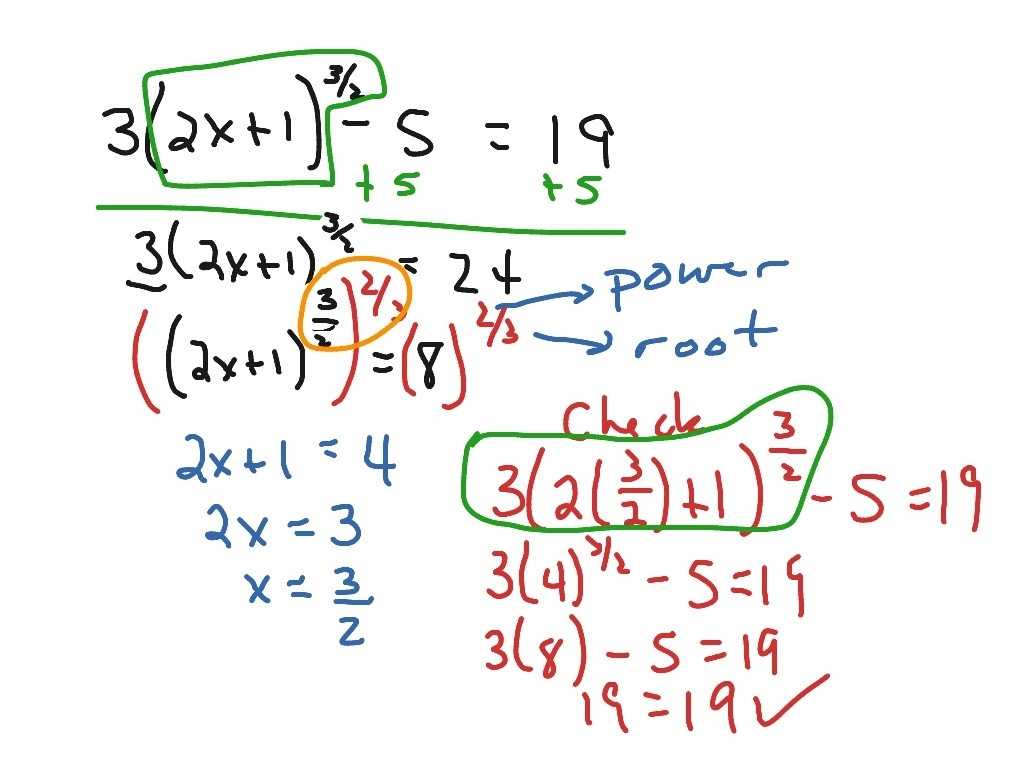 3(2x+1)^3/2 - 5 = 19
+5 +5
3(2x+1)^3/2 = 24
((2x+1)^3/2)^2/3 = (8)^2/3
power
root
2x+1 = 4
2x = 3
x = 3/2
Check
3(2(3/2)+1)^3/2 - 5 = 19
3(4)^3/2 - 5 = 19
3(8) - 5 = 19
19 = 19 ✓